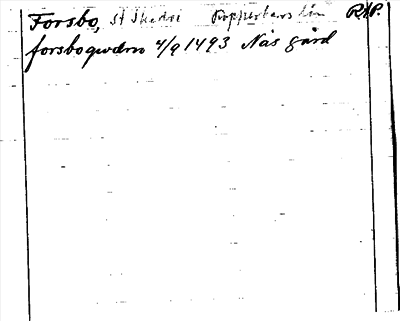 Forsbo, St Skedvi Kopparbergs län RAP.
forsboqwdrn 4/9 1493 Näs gård